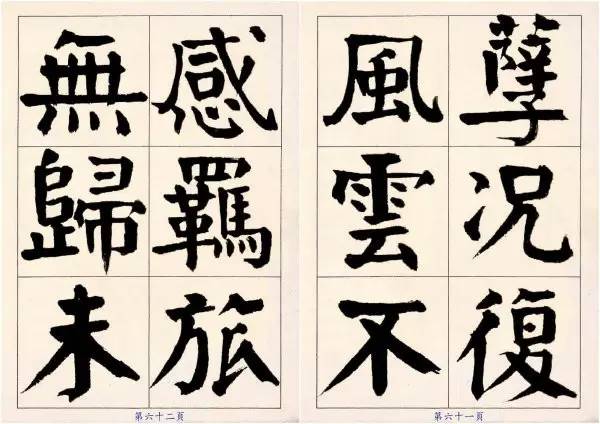 孽况復
風雲不
第六十一頁
感羈旅
無歸未
第六十二頁